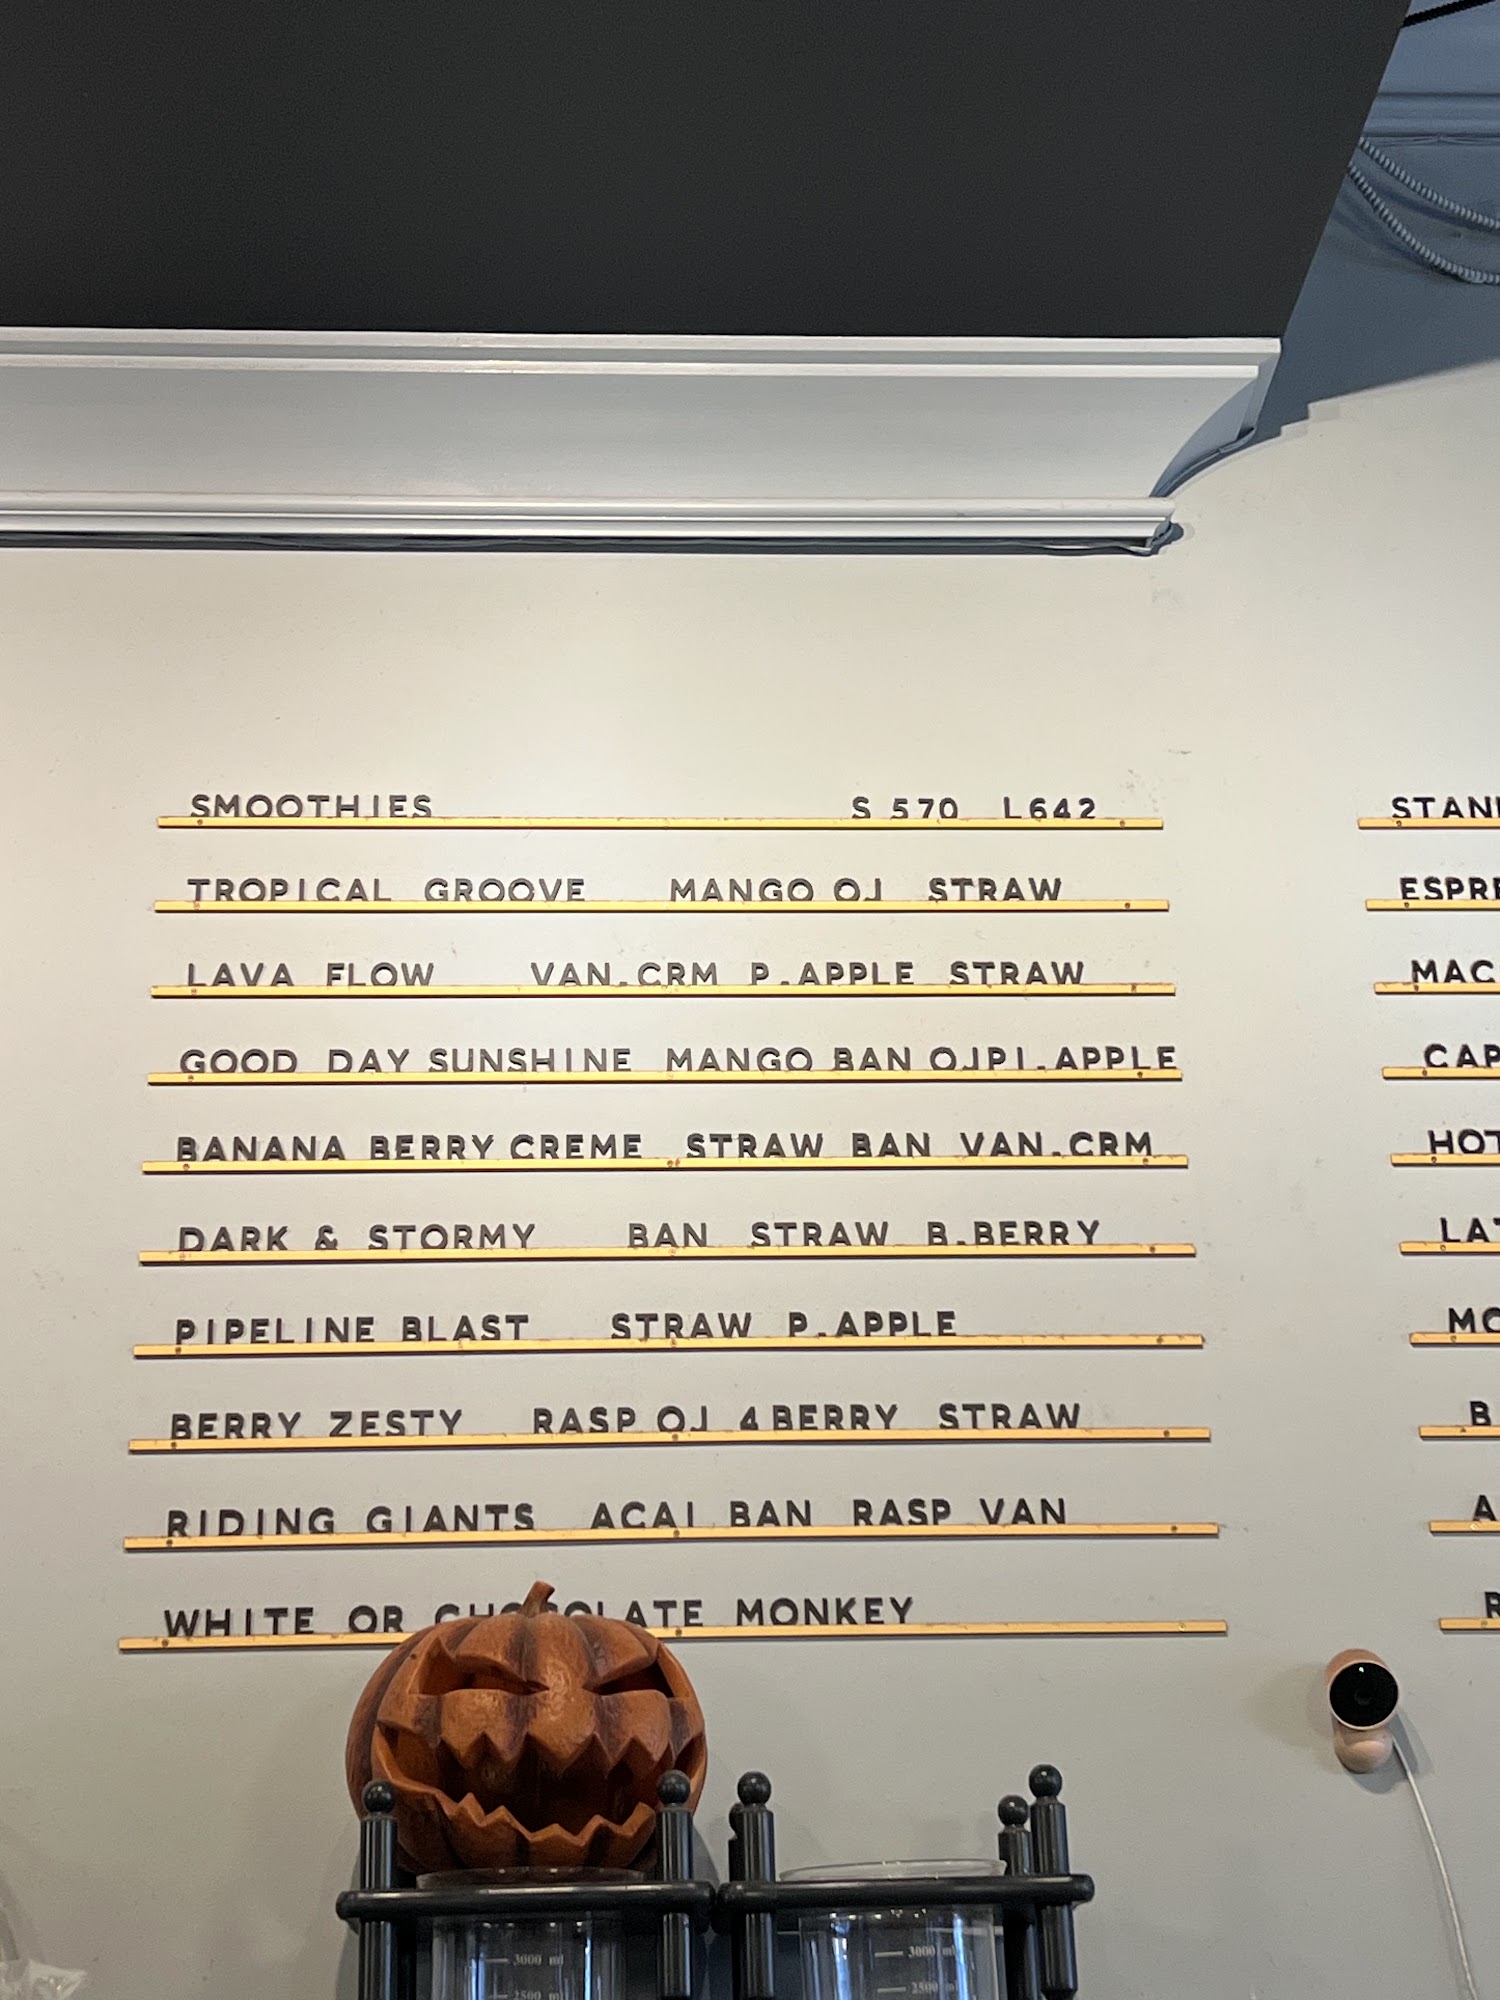 SMOOTHIES S 570 L642
TROPICAL GROOVE MANGO OJ STRAW
LAVA FLOW VAN.CRM P.APPLE STRAW
GOOD DAY SUNSHINE MANGO BAN OJPI.APPLE
BANANA BERRY CREME STRAW BAN VAN.CRM
DARK & STORMY BAN STRAW B.BERRY
PIPELINE BLAST STRAW P.APPLE
BERRY ZESTY RASP OJ 4BERRY STRAW
RIDING GIANTS ACAI BAN RASP VAN
WHITE OR CHOCOLATE MONKEY
STAN
ESPRE
MAC
CAP
HOT
LAT
MO
B
A
R
3000 ml
2500 ml
3000 ml
2500 ml